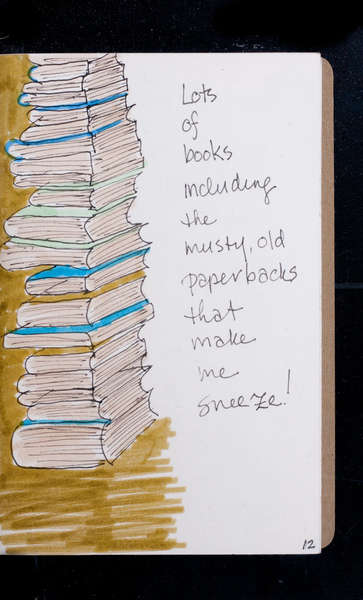 Lots
of
books
including
the
musty, old
paperbacks
that
make
me
sneeze!
12